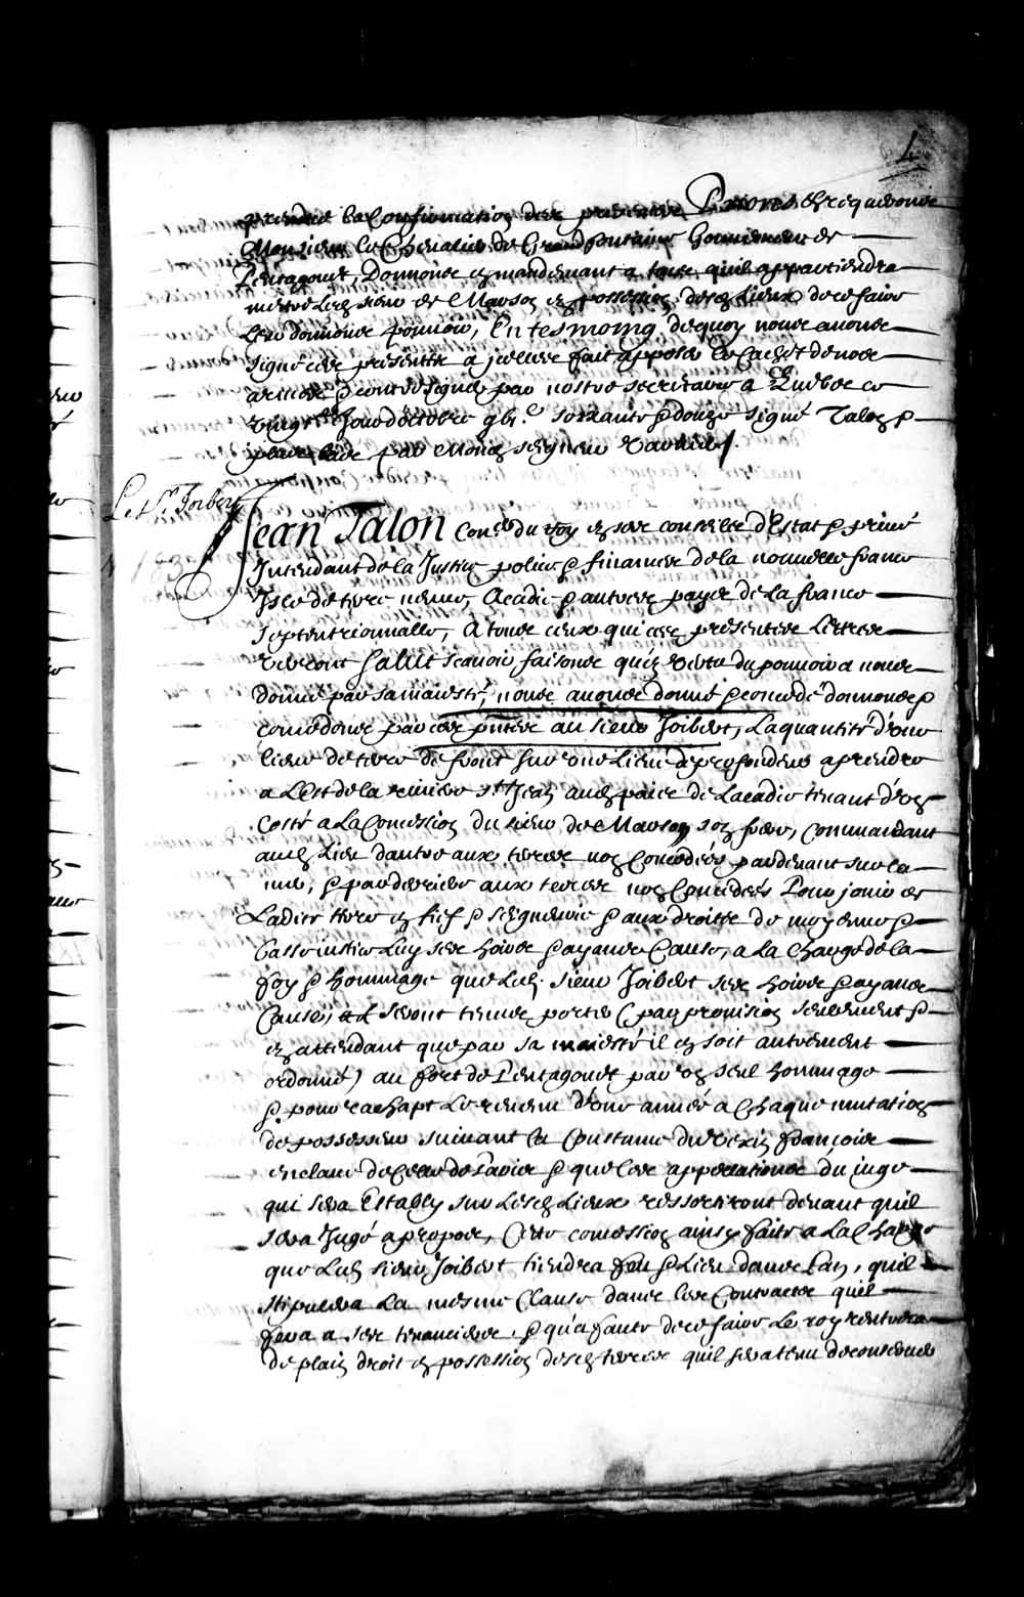 1.
prendre la Confirmation des presentes Prions & requerons
Monsieur le Chevalier de Grandfontaine Gouverneur de
Pentagouet, Donnons en mandement a tous quil appartiendra
mettre Led. sieur de Marson en possession desd. Lieux de ce faire
Leur donnons pouvoir, En tesmoing dequoy nous avons
signé ces presentes a jcelles fait apposer le cachet de nos
armes & contresigner par nostre secretaire a Quebec ce
vingt jour d'octobre gbi.e soixante & douze signé Talon &
plus bas par Monseigneur Varnier /.
Le Sr. Joibert
Jean Talon Con.er du roy en ses conseils d'Estat & privé
Intendant de la Justice police & finances de la nouvelle france
Isle de terre neuve, Acadie & autres pays de La france
septentrionnalle, A tous ceux qui ces presentes Lettres
verront Salut scavoir faisons qu'en vertu du pouvoir a nous
donné par sa maiesté, nous avons donné & concedé donnons &
concedons par ces pntes au sieur Joibert, La quantité d'une
lieue de terre de front sur une Lieue de profondeur a prendre
a L'Est de la riviere St. Jean aud. pais de Lacadie tenant d'un
costé a La Concession du sieur de Marson son frere, Commandant
aud. Lieu d'autre aux terres non Concedées par devant sur la
, & par derriere aux terres non Concedées Pour jouir de
Ladite terre en fief & seigneurie & aux droits de moyenne &
basse iustice Luy ses hoirs & ayans Cause, a La charge de la
foy & hommage que Led. sieur Joibert ses hoirs & ayans
Cause, seront tenus porter (par provision seulement &
en attendant que par sa maiesté il en soit autrement
ordonné) au fort de Pentagouet par un seul hommage
& pour rachapt Le revenu d'une année a Chaque mutation
de possesseur suivant la Coustume du vexin françois
enclave de celle de Paris & que les appellations du juge
qui sera Estably sur Lesd. Lieux ressortiront devant quil
sera Jugé a propos, Cette concession ainsy faite a La Charge
que Led. sieur Joibert tiendra feu & Lieu dans L'an, quil
stipulera La mesme Clause dans les Contractes quil
fera a ses tenanciers. & qu'a faute de ce faire Le roy rentrera
de plain droit en possession desd. terres quil sera tenu de conserver